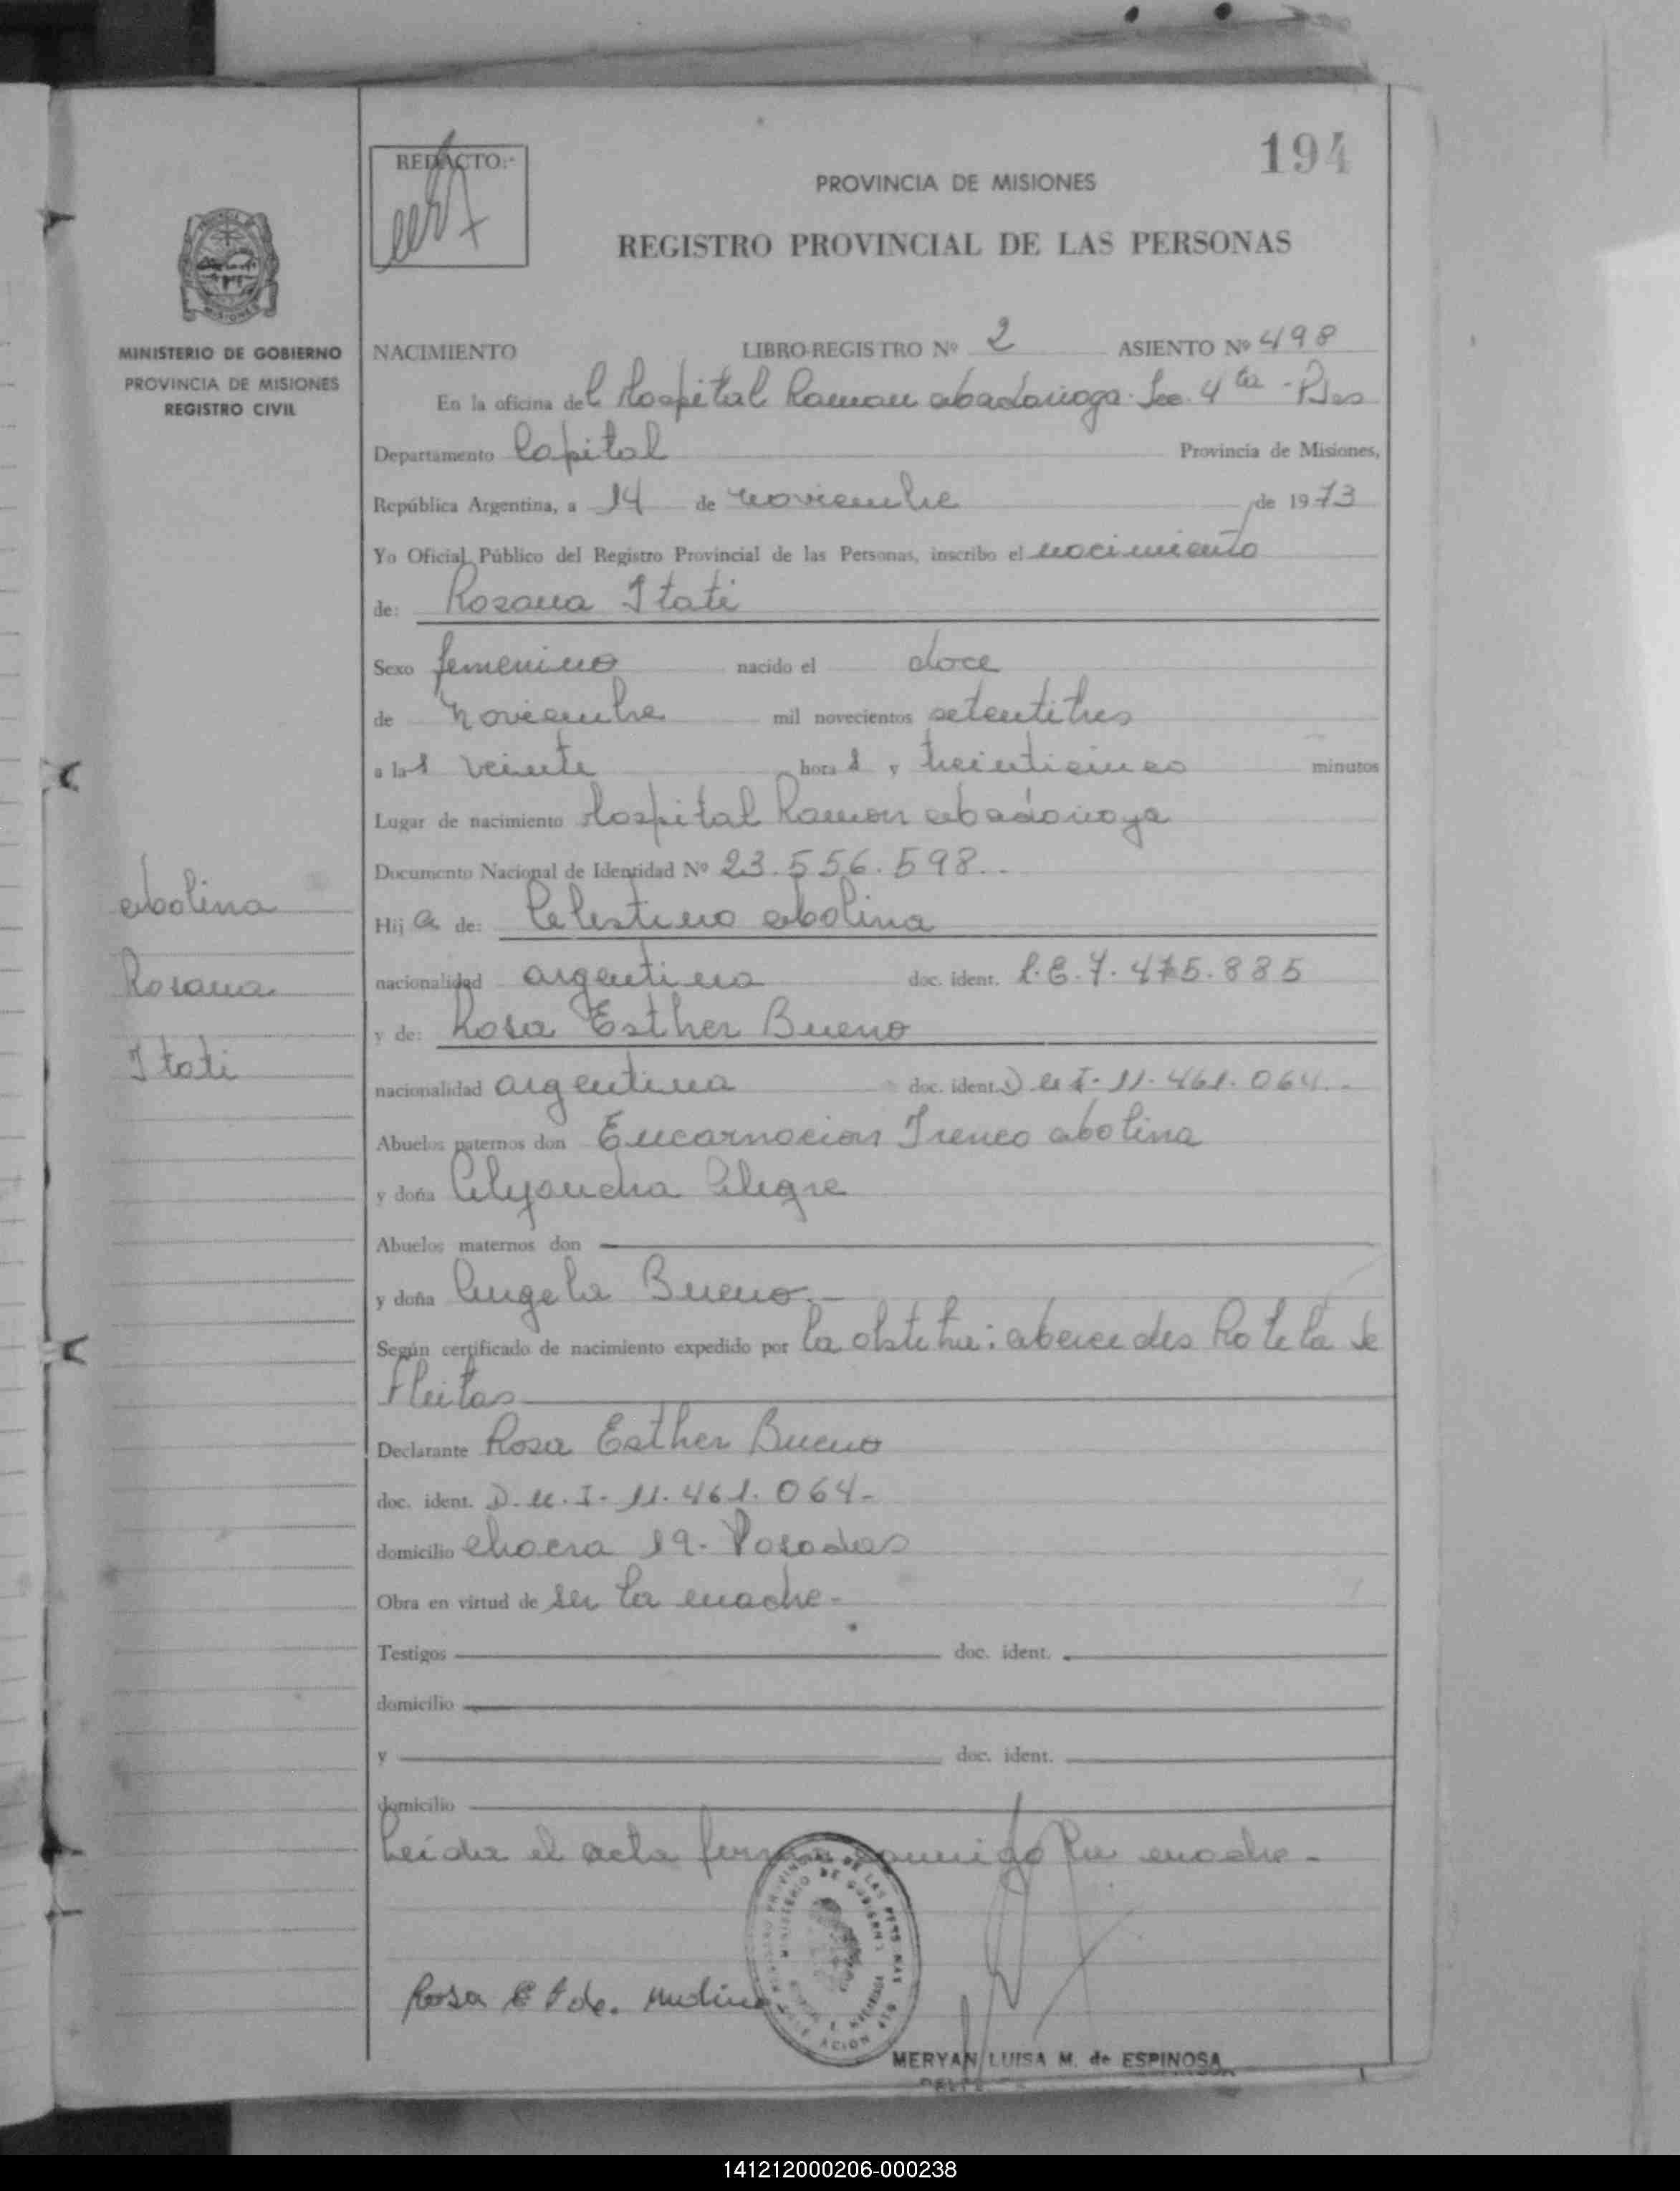 194
REDACTO:-
PROVINCIA DE MISIONES
REGISTRO PROVINCIAL DE LAS PERSONAS
MINISTERIO DE GOBIERNO
PROVINCIA DE MISIONES
REGISTRO CIVIL
NACIMIENTO LIBRO-REGISTRO Nº 2 ASIENTO Nº 498
En la oficina del Hospital Ramon Madariaga. Sec. 4ta - Pdas
Departamento Capital Provincia de Misiones,
República Argentina, a 14 de noviembre de 1973
Yo Oficial Público del Registro Provincial de las Personas, inscribo el nacimiento
de: Rosana Itati
Sexo femenino nacido el doce
de noviembre mil novecientos setentitres
a las veinte horas y treinticinco minutos
Lugar de nacimiento Hospital Ramon Madariaga
Documento Nacional de Identidad Nº 23.556.598.-
Molina
Rosana
Itati
Hija de: Celestino Molina
nacionalidad argentina doc. ident. L.E.7.475.885
y de: Rosa Esther Bueno
nacionalidad argentina doc. ident. D.N.I-11.461.064.-
Abuelos paternos don Encarnacion Ireneo Molina
y doña Alejandra Alegre
Abuelos maternos don
y doña Angela Bueno.-
Según certificado de nacimiento expedido por la obstetra: Mercedes Rotela de
Fleitas
Declarante Rosa Esther Bueno
doc. ident. D.N.I-11.461.064-
domicilio chacra 19-Posadas
Obra en virtud de ser la madre-
Testigos doc. ident.
domicilio
y doc. ident.
domicilio
Leida el acta firma conmigo la madre-
Rosa E B de. Molina
MERYAN LUISA M. de ESPINOSA
141212000206-000238